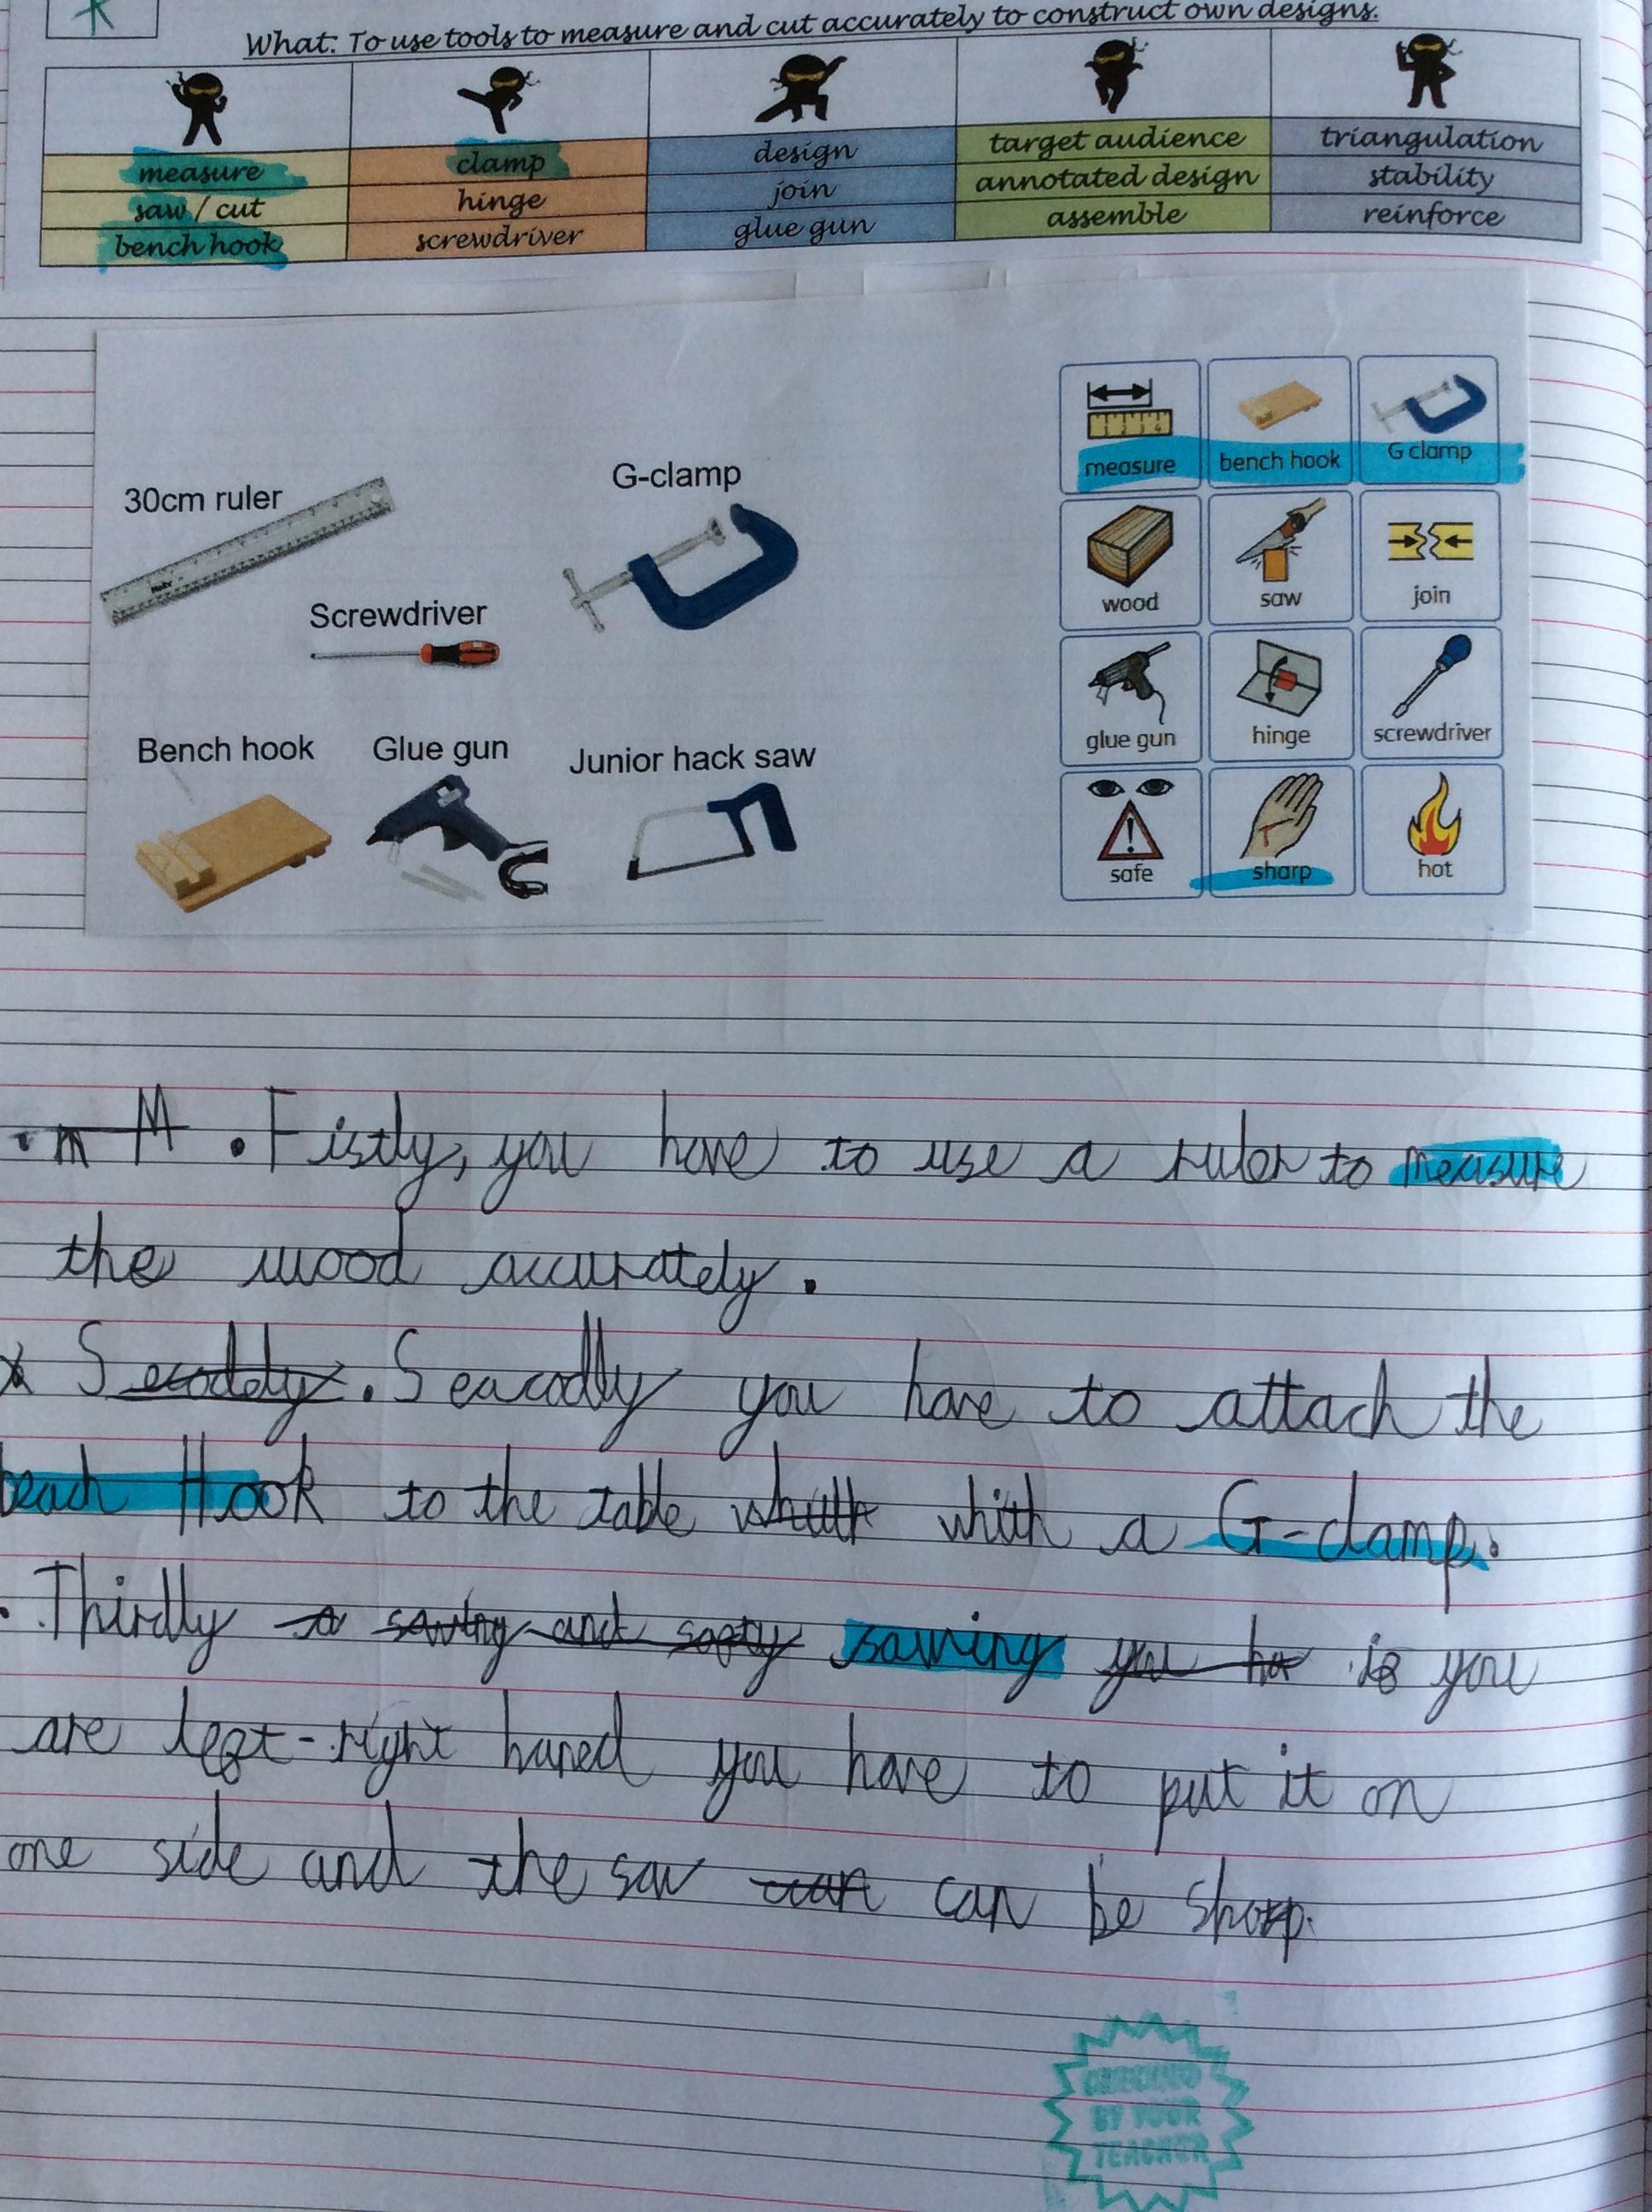 K
What: To use tools to measure and cut accurately to construct own designs.
measure clamp design target audience triangulation
saw / cut hinge join annotated design stability
bench hook screwdriver glue gun assemble reinforce
30cm ruler
G-clamp
Screwdriver
Bench hook Glue gun Junior hack saw
measure bench hook G clamp
wood saw join
glue gun hinge screwdriver
safe sharp hot
. m M . Fistly, you have to use a ruler to measure
the wood accurately.
Secoddly. Seacodly you have to attach the
beach Hook to the table whith a G-clamp.
. Thirdly sawing and safty sawing you ha is you
are left-right haned you have to put it on
one side and the saw can be sharp.
CHECKED
BY YOUR
TEACHER